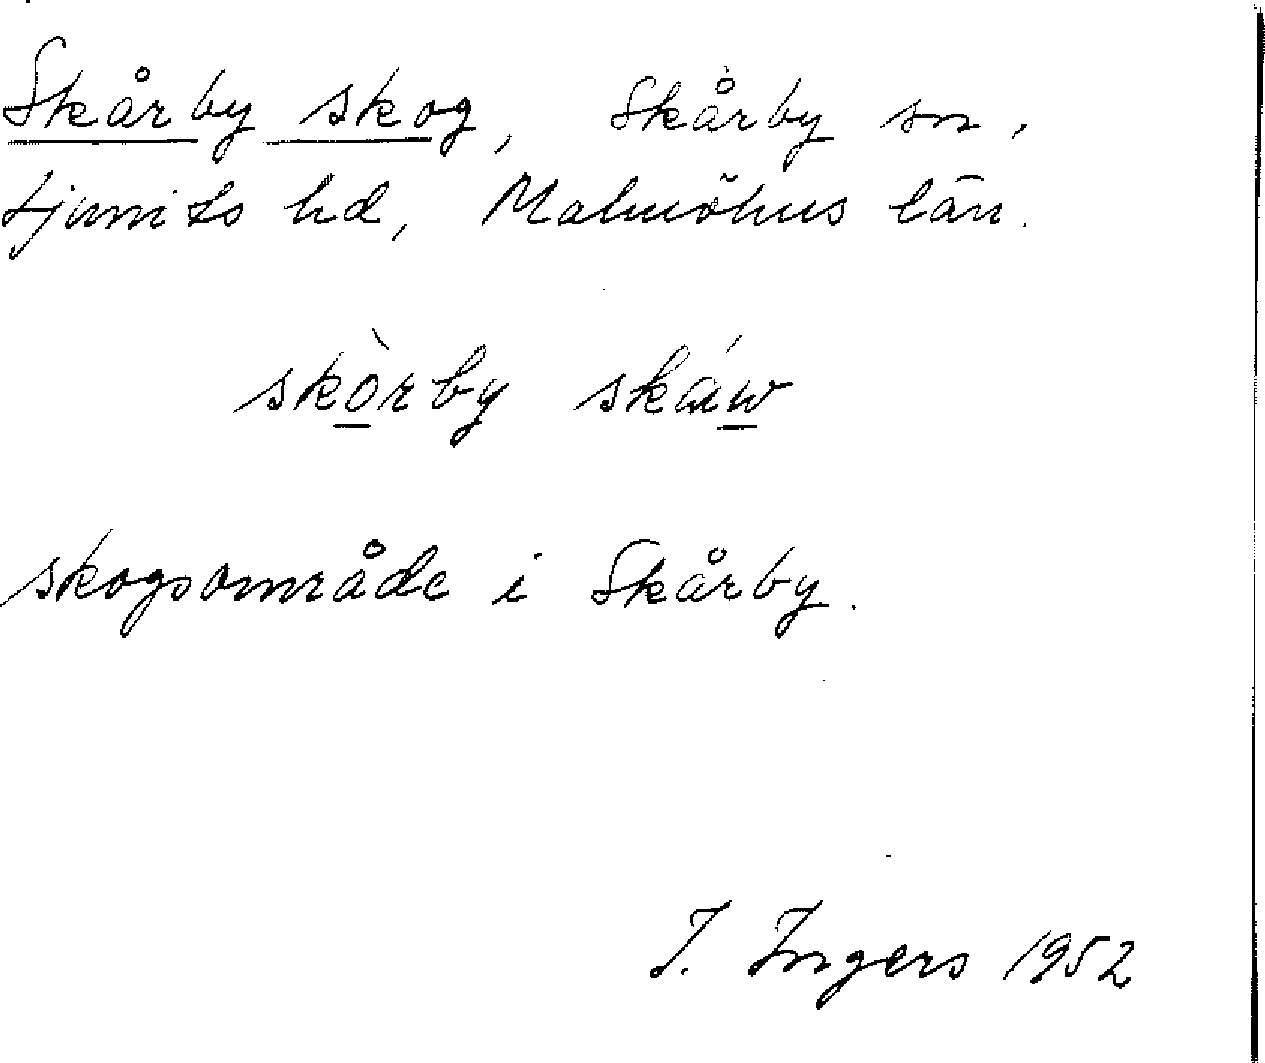 Skårby skog, Skårby sn,
Ljunits hd, Malmöhus län.
skòrby skáw
skogsområde i Skårby.
I. Ingers 1952